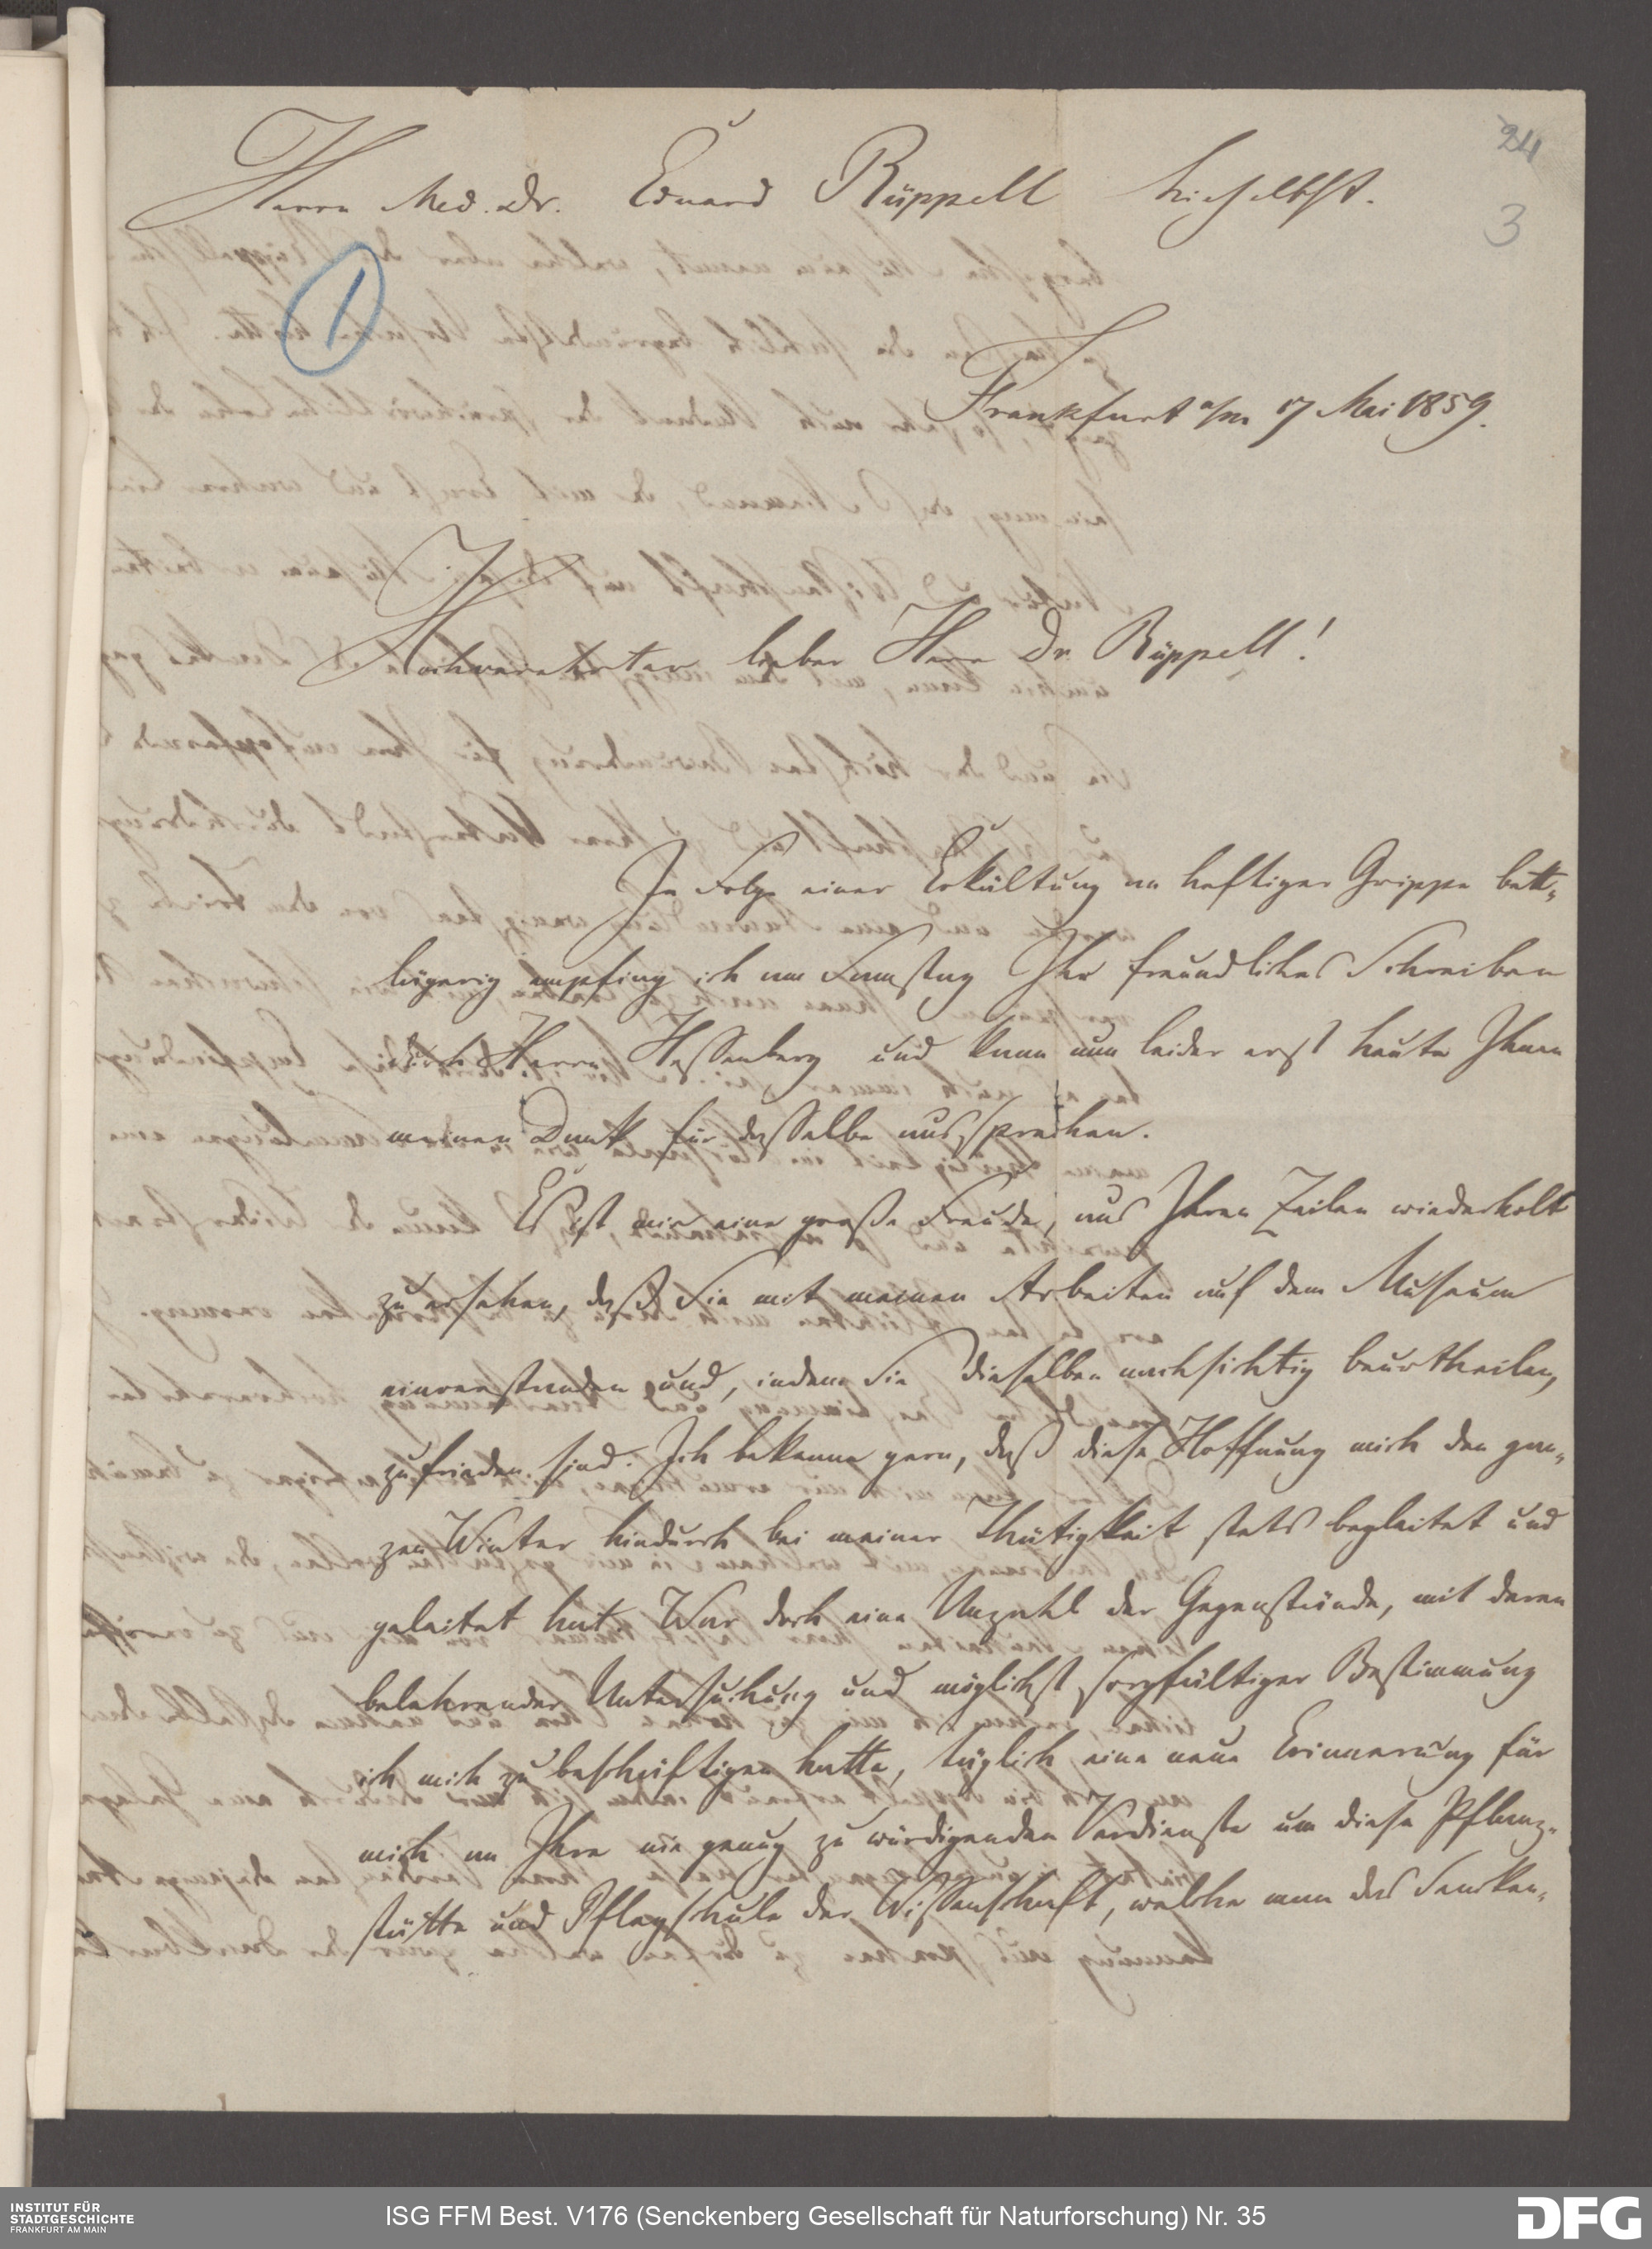 24
3
Herrn Med. Dr. Eduard Rüppell hieselbst.
1
Frankfurt a/m 17 Mai 1859.
Hochverehrter lieber Herr Dr Rüppell!
In Folge einer Erkältung an heftiger Grippe bett-
lägerig empfing ich am Samstag Ihr freundliches Schreiben
durch Herrn Hessenberg und kann nun leider erst heute Ihnen
meinen Dank für dasselbe aussprechen.
Es ist mir eine große Freude, aus Ihren Zeilen wiederholt
zu ersehen, daß Sie mit meinen Arbeiten auf dem Museum
einverstanden und, indem Sie dieselben nachsichtig beurtheilen,
zufrieden sind. Ich bekenne gern, daß diese Hoffnung mich den gan-
zen Winter hindurch bei meiner Thätigkeit stets begleitet und
geleitet hat. War doch eine Unzahl der Gegenstände, mit deren
belehrender Untersuchung und möglichst sorgfältiger Bestimmung
ich mich zu beschäftigen hatte, täglich eine neue Erinnerung für
mich an Ihre nie genug zu würdigenden Verdienste um diese Pflanz-
stätte und Pflegschule der Wissenschaft, welche man das Sencken-
INSTITUT FÜR
STADTGESCHICHTE
FRANKFURT AM MAIN
ISG FFM Best. V176 (Senckenberg Gesellschaft für Naturforschung) Nr. 35
DFG